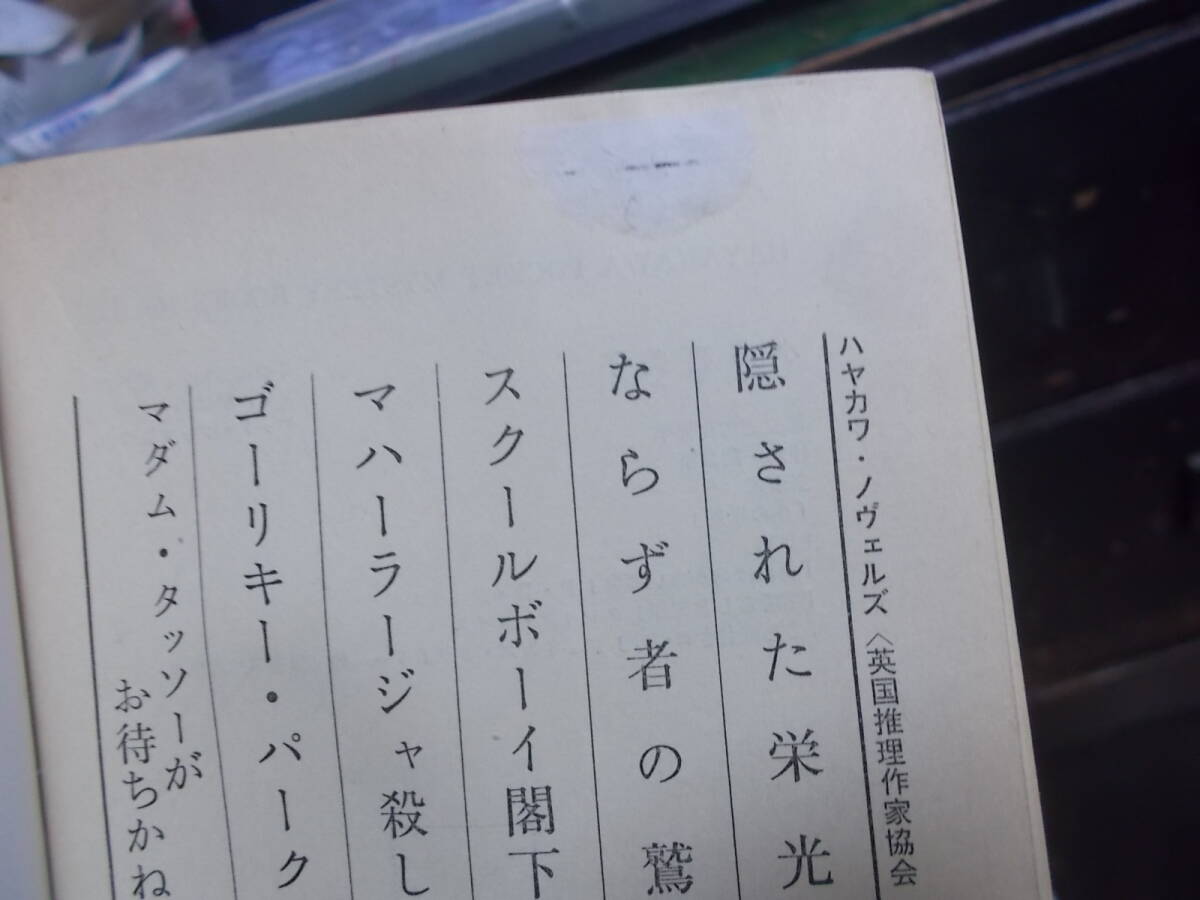 ハヤカワ・ノヴェルズ〈英国推理作家協会
隠された栄光
ならず者の鷲
スクールボーイ閣下
マハーラージャ殺し
ゴーリキー・パーク
マダム・タッソーが
お待ちかね